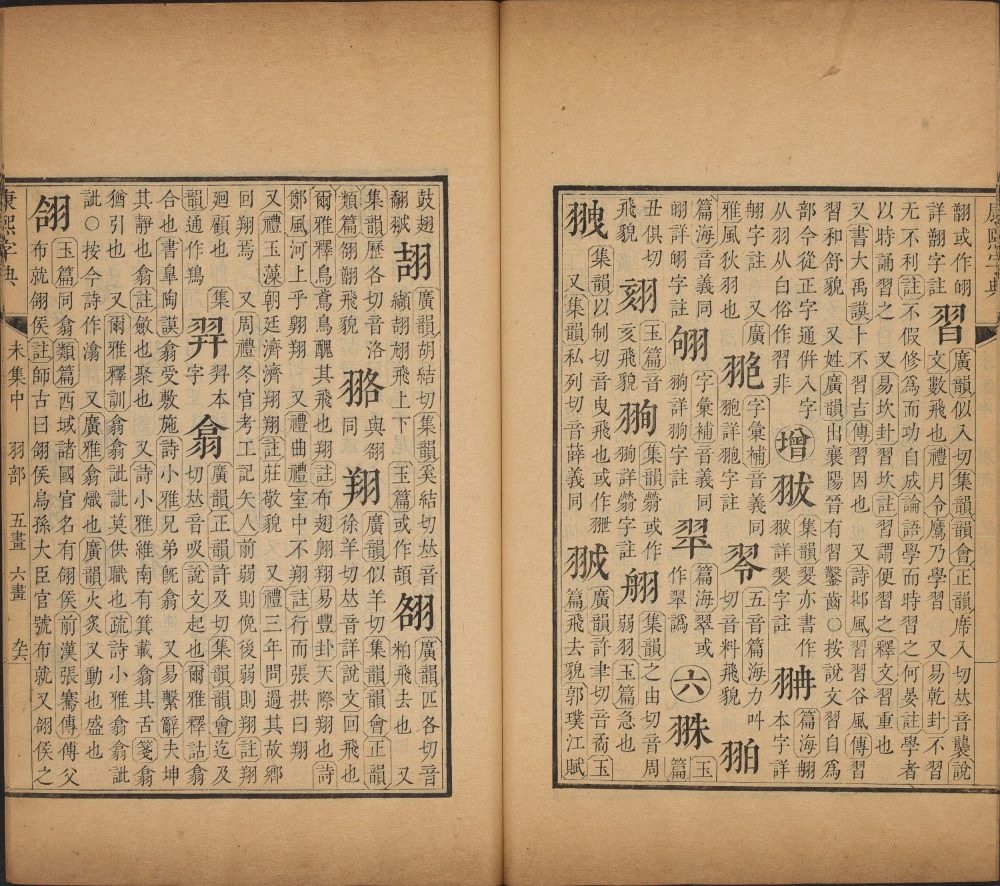 翿或作䎃習廣韻似入切集韻韻會正韻席入切𠀤音襲說
詳翿字註文數飛也禮月令鷹乃學習 又易乾卦不習
无不利註不假修爲而功自成論語學而時習之何晏註學者
以時誦習之 又易坎卦習坎註習謂便習之釋文習重也
又書大禹謨卜不習吉傳習因也 又詩邶風習習谷風傳習
習和舒貌 又姓廣韻出襄陽晉有習鑿齒○按說文習自爲
部今從正字通倂入字增翍集韻翇亦書作翀篇海翢
从羽从白俗作習非翇詳翇字註本字詳
字註 又廣字彙補音義同五音篇海力叫
雅風狄羽也詳字註切音料飛貌
篇海音義同字彙補音義同翠篇海翠或六玉
詳字註詳字註作翠譌篇
丑俱切玉篇音集韻或作集韻之由切音周
飛貌亥飛貌詳字註弱羽玉篇急也
集韻以制切音曳飛也或作翨翃廣韻許聿切音矞玉
又集韻私列切音薛義同篇飛去貌郭璞江賦
鼓翅翓廣韻胡結切集韻奚結切𠀤音翖廣韻匹各切音
翻翃纈翓翃飛上下 玉篇或作頡粕飛去也 又
集韻歷各切音洛翔廣韻似羊切集韻韻會正韻
類篇翖翻飛貌與翖同徐羊切𠀤音詳說文回飛也
爾雅釋鳥鳶烏醜其飛也翔註布翅翱翔易豐卦天際翔也詩
鄭風河上乎翱翔 又禮曲禮室中不翔註行而張拱曰翔
又禮玉藻朝廷濟濟翔翔註莊敬貌 又禮三年問過其故鄉
回翔焉 又周禮冬官考工記矢人前弱則俛後弱則翔註翔
廻顧也 集羿羿本翕廣韻正韻許及切集韻韻會迄及
韻通作鴹字切𠀤音吸說文起也爾雅釋詁翕
合也書臯陶謨翕受敷施詩小雅兄弟旣翕 又易繫辭夫坤
其靜也翕註斂也聚也 又詩小雅維南有箕載翕其舌箋翕
猶引也 又爾雅釋訓翕翕訿訿莫供職也疏詩小雅翕翕訿
訿○按今詩作潝 又廣雅翕熾也廣韻火炙又動也盛也
翖玉篇同翕類篇西域諸國官名有翖侯前漢張騫傳傅父
布就翖侯註師古曰翖侯烏孫大臣官號布就又翖侯之
康熙字典 未集中 羽部 五畫 六畫